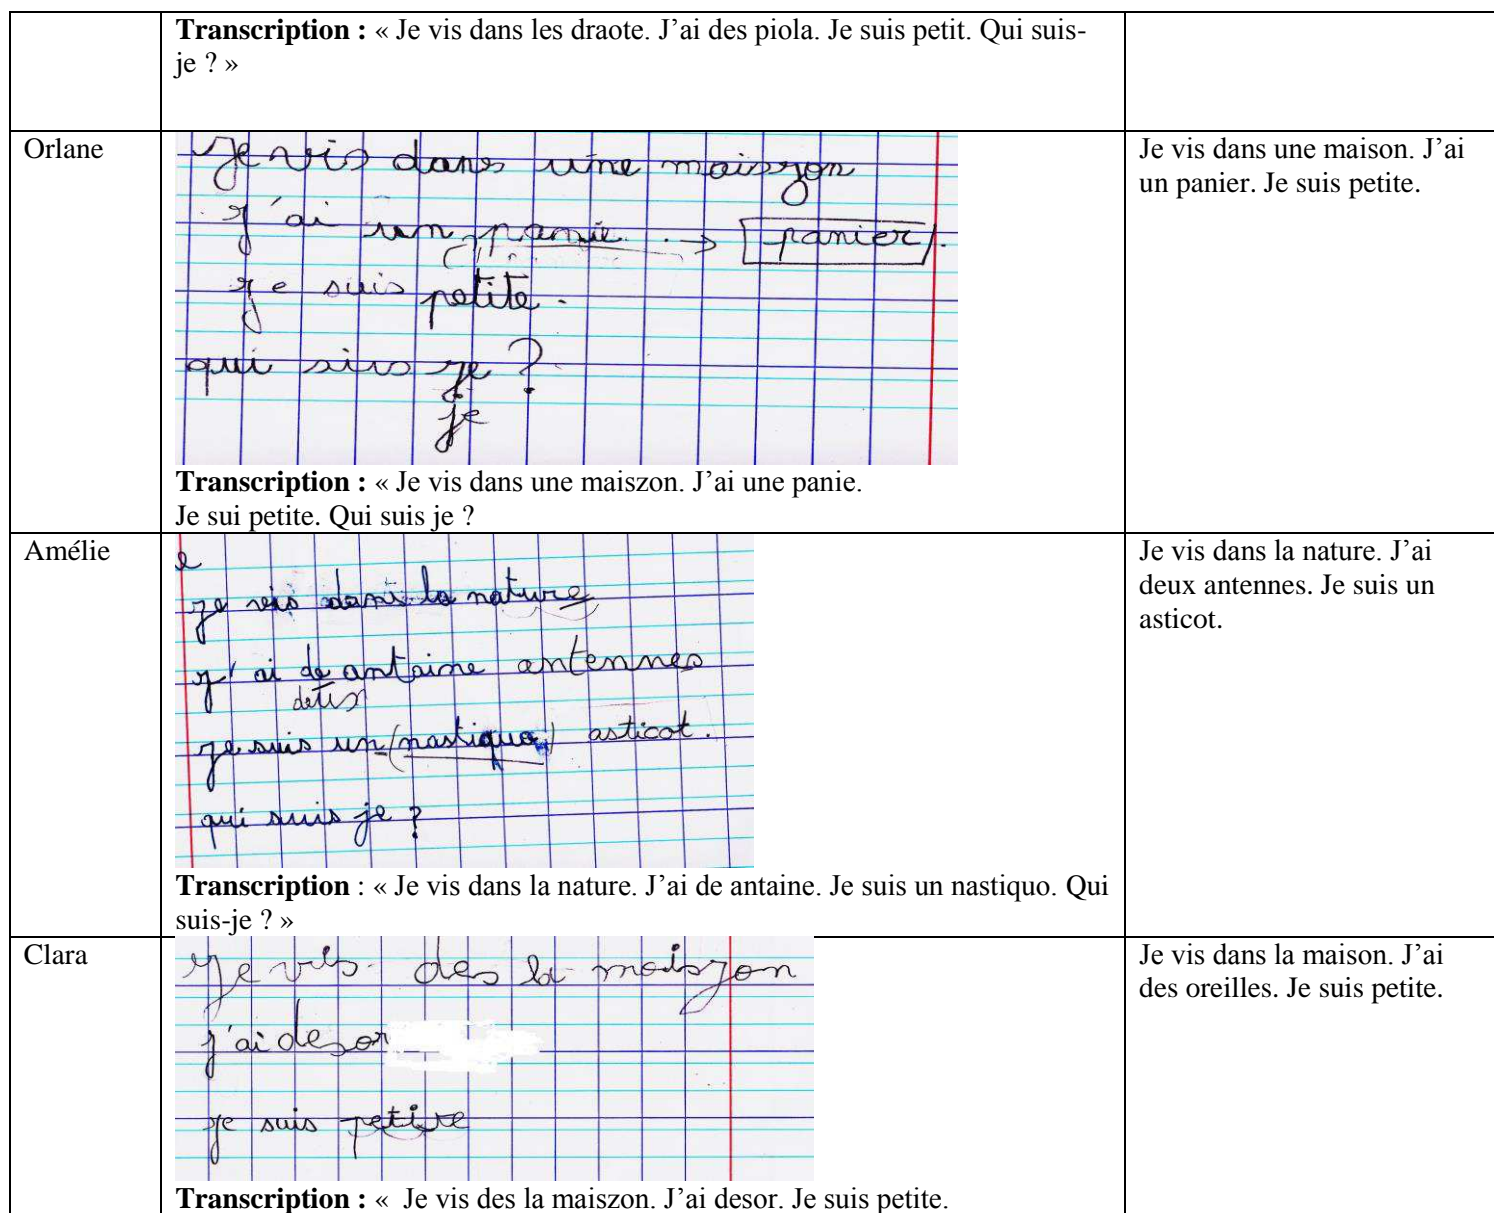 Transcription : « Je vis dans les draote. J’ai des piola. Je suis petit. Qui suis-
je ? »
Orlane
Je vis dans une maiszon
j'ai un panie → panier.
je suis petite.
qui sius je ?
je
Transcription : « Je vis dans une maiszon. J’ai une panie.
Je sui petite. Qui suis je ?
Je vis dans une maison. J’ai
un panier. Je suis petite.
Amélie
e
je vis dans la nature
j'ai de antaine antennes
deux
je suis un (nastiquo) asticot.
qui suis je ?
Transcription : « Je vis dans la nature. J’ai de antaine. Je suis un nastiquo. Qui
suis-je ? »
Je vis dans la nature. J’ai
deux antennes. Je suis un
asticot.
Clara
Je vis des la maiszon
j'ai desor
je suis petite
Transcription : « Je vis des la maiszon. J’ai desor. Je suis petite.
Je vis dans la maison. J’ai
des oreilles. Je suis petite.